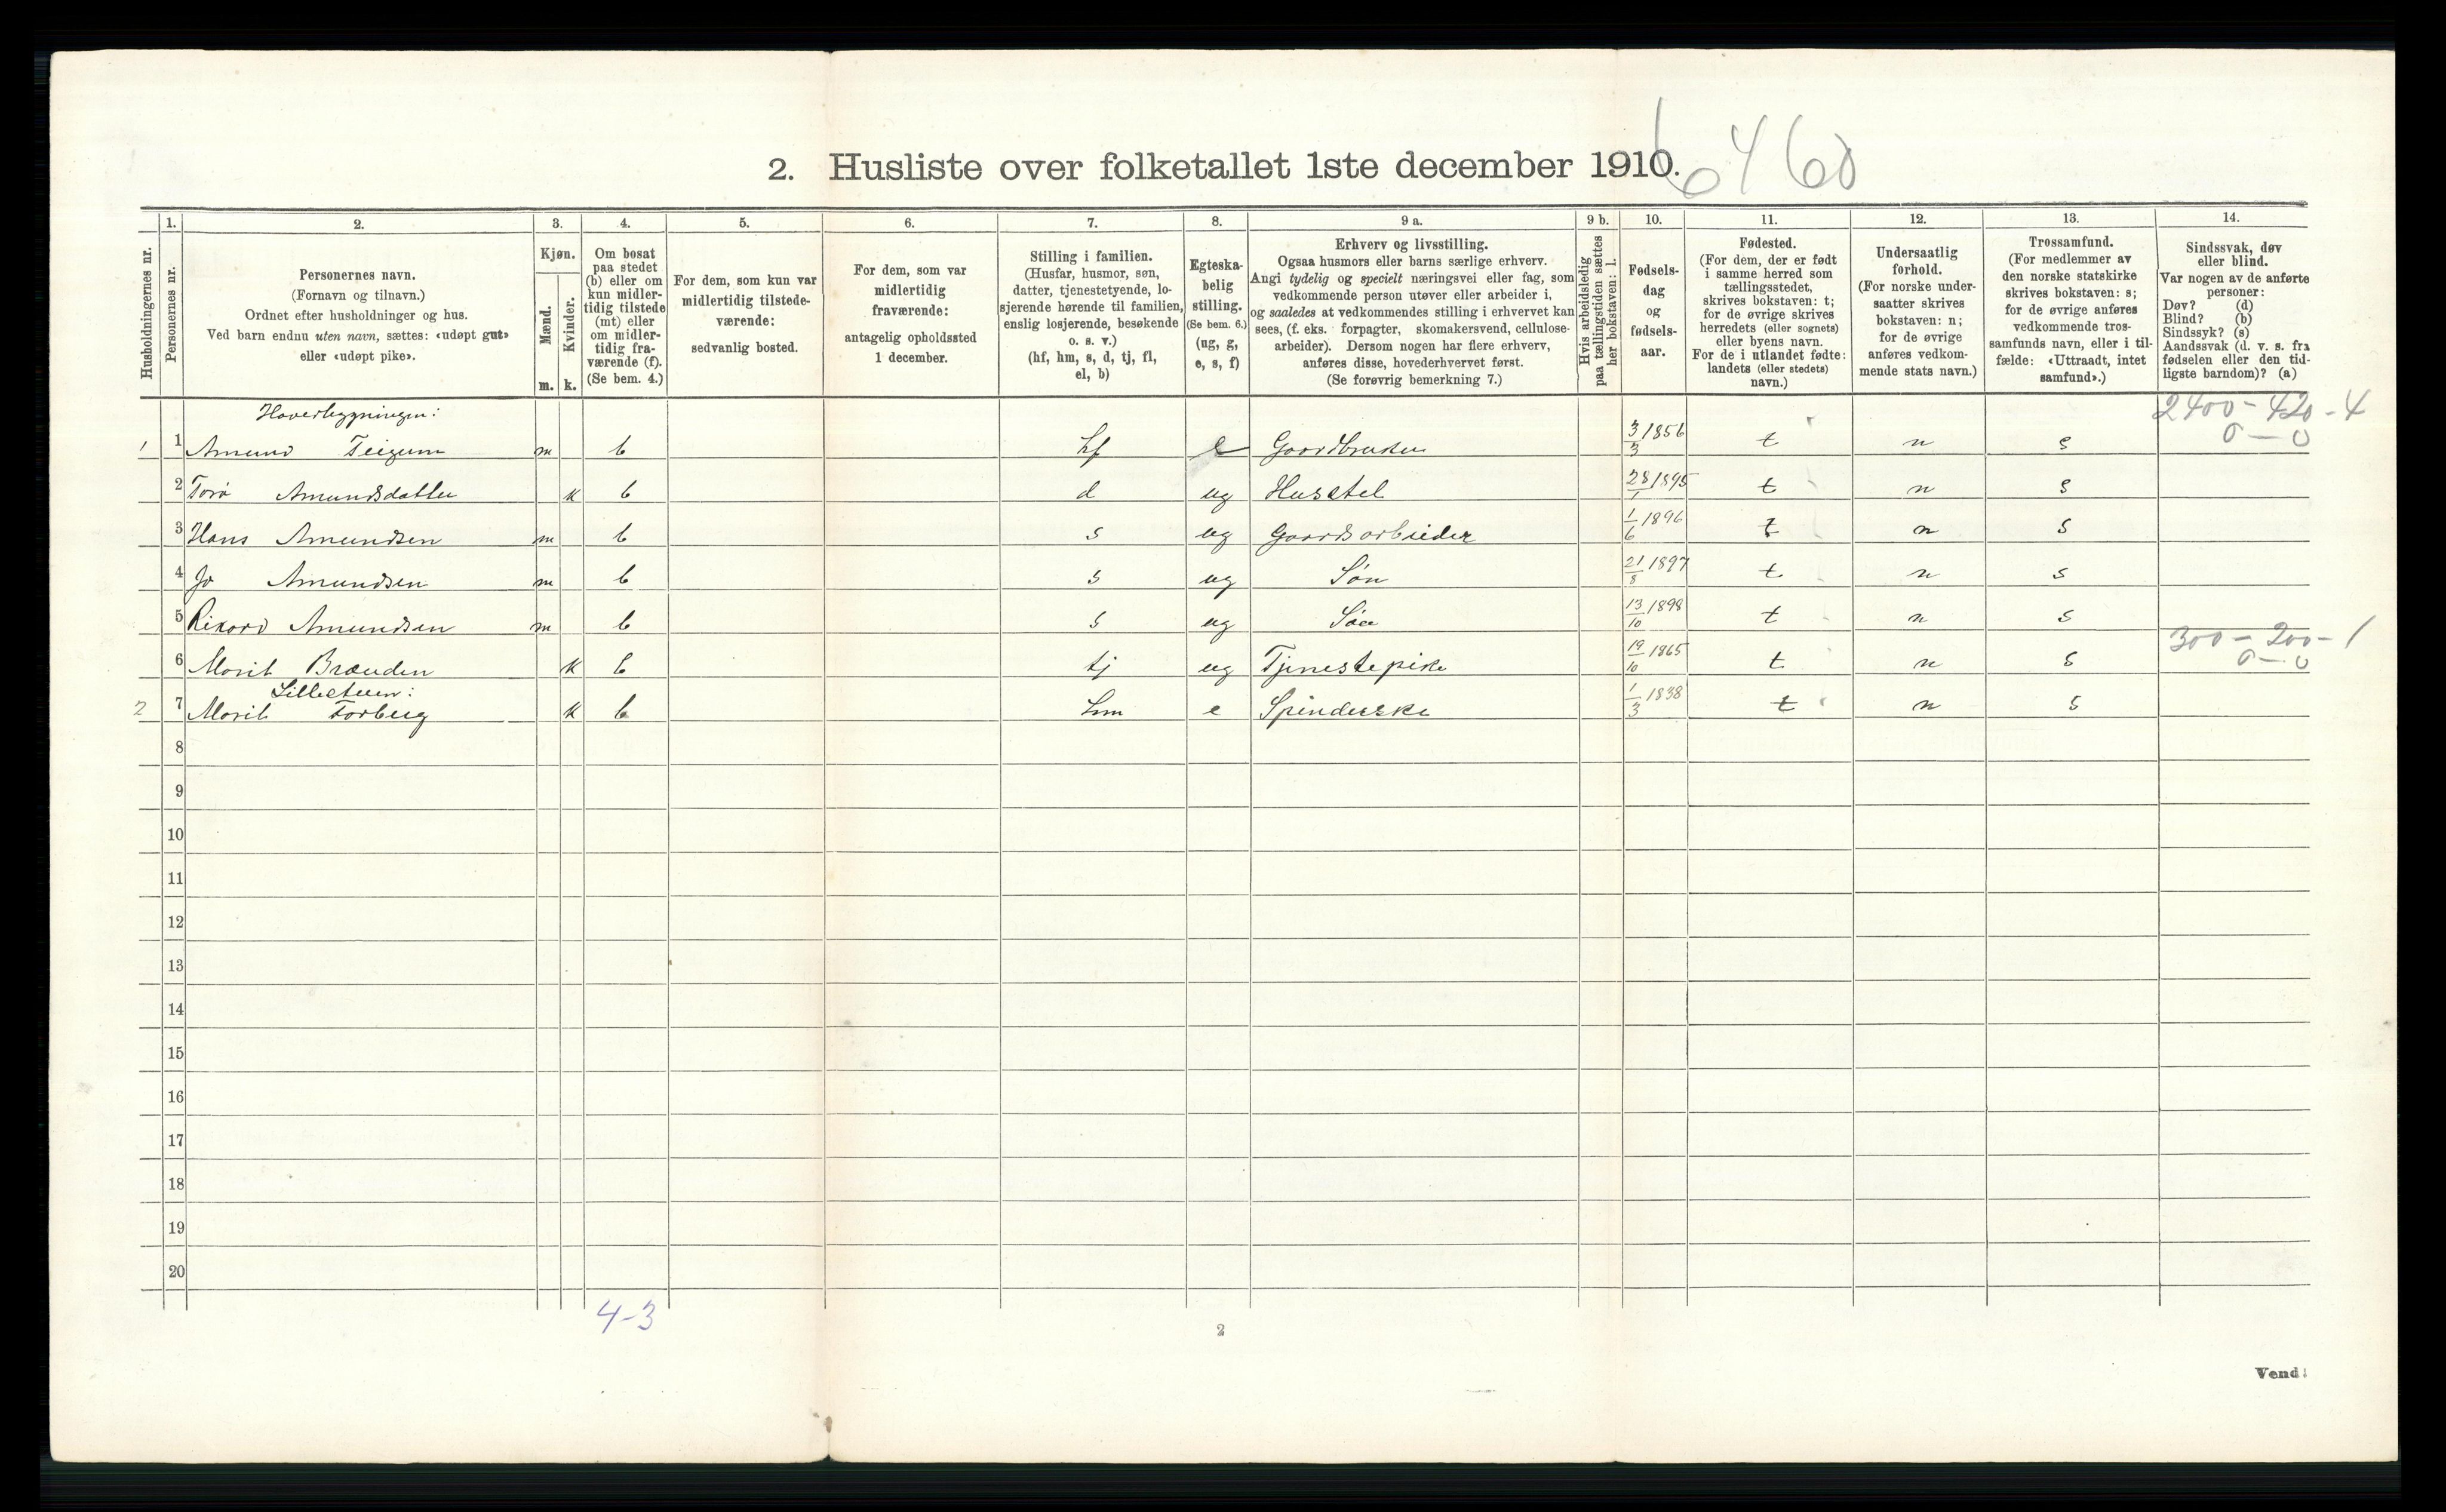 6460
2. Husliste over folketallet 1ste december 1910.
Husholdningernes nr.
1.
Personernes nr.
2.
Personernes navn.
(Fornavn og tilnavn.)
Ordnet efter husholdninger og hus.
Ved barn endnu uten navn, sættes: «udøpt gut»
eller «udøpt pike».
3.
Kjøn.
Mænd.
Kvinder.
m. k.
4.
Om bosat
paa stedet
(b) eller om
kun midler-
tidig tilstede
(mt) eller
om midler-
tidig fra-
værende (f).
(Se bem. 4.)
5.
For dem, som kun var
midlertidig tilstede-
værende:
sedvanlig bosted.
6.
For dem, som var
midlertidig
fraværende:
antagelig opholdssted
1 december.
7.
Stilling i familien.
(Husfar, husmor, søn,
datter, tjenestetyende, lo-
sjerende hørende til familien,
enslig losjerende, besøkende
o. s. v.)
(hf, hm, s, d, tj, fl,
el, b)
8.
Egteska-
belig
stilling.
(Se bem. 6.)
(ug, g,
e, s, f)
9 a.
Erhverv og livsstilling.
Ogsaa husmors eller barns særlige erhverv.
Angi tydelig og specielt næringsvei eller fag, som
vedkommende person utøver eller arbeider i,
og saaledes at vedkommendes stilling i erhvervet kan
sees, (f. eks. forpagter, skomakersvend, cellulose-
arbeider). Dersom nogen har flere erhverv,
anføres disse, hovederhvervet først.
(Se forøvrig bemerkning 7.)
9 b.
Hvis arbeidsledig
paa tællingstiden sættes
her bokstaven: l.
10.
Fødsels-
dag
og
fødsels-
aar.
11.
Fødested.
(For dem, der er født
i samme herred som
tællingsstedet,
skrives bokstaven: t;
for de øvrige skrives
herredets (eller sognets)
eller byens navn.
For de i utlandet fødte:
landets (eller stedets)
navn.)
12.
Undersaatlig
forhold.
(For norske under-
saatter skrives
bokstaven: n;
for de øvrige
anføres vedkom-
mende stats navn.)
13.
Trossamfund.
(For medlemmer av
den norske statskirke
skrives bokstaven: s;
for de øvrige anføres
vedkommende tros-
samfunds navn, eller i til-
fælde: «Uttraadt, intet
samfund».)
14.
Sindssvak, døv
eller blind.
Var nogen av de anførte
personer:
Døv? (d)
Blind? (b)
Sindssyk? (s)
Aandssvak (d. v. s. fra
fødselen eller den tid-
ligste barndom)? (a)
2400 - 420 - 4
0 - 0
Hovedbygningen:
1 1 Amund Teigum m b hf e Gaardbruker 3/3 1856 t n s
2 Torø Amundsdatter k b d ug Husstel 28/1 1895 t n s
3 Hans Amundsen m b s ug Gaardsarbeider 1/6 1896 t n s
4 Jo Amundsen m b s ug Søn 21/8 1897 t n s
5 Rikard Amundsen m b s ug Søn 13/10 1898 t n s
300 - 200 - 1
0 - 0
6 Marit Brænden k b tj ug Tjenestepike 19/10 1865 t n s
Lillestuen:
2 7 Marit Forberg k b hm e Spinderske 1/3 1838 t n s
8
9
10
11
12
13
14
15
16
17
18
19
20
4-3
2
Vend!